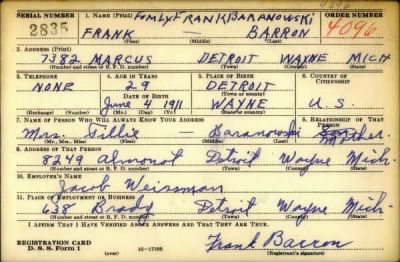 SERIAL NUMBER 1. NAME (Print) Fomly FRANK BARANOWSKI ORDER NUMBER
2835 FRANK — BARRON 4096
(First) (Middle) (Last)
2. ADDRESS (Print)
7382 MARCUS DETROIT WAYNE MICH
(Number and street or R. F. D. number) (Town) (County) (State)
3. TELEPHONE 4. AGE IN YEARS 5. PLACE OF BIRTH 6. COUNTRY OF CITIZENSHIP
NONE 29 DETROIT
DATE OF BIRTH (Town or county)
June 4 1911 WAYNE U. S.
(Exchange) (Number) (Mo.) (Day) (Yr.) (State or country)
7. NAME OF PERSON WHO WILL ALWAYS KNOW YOUR ADDRESS 8. RELATIONSHIP OF THAT PERSON
Mrs. Tillie — Baranowski Mother.
(Mr., Mrs., Miss) (First) (Middle) (Last)
9. ADDRESS OF THAT PERSON
8249 Almont Detroit Wayne Mich.
(Number and street or R. F. D. number) (Town) (County) (State)
10. EMPLOYER'S NAME
Jacob Weissman
11. PLACE OF EMPLOYMENT OR BUSINESS
638 Brady Detroit Wayne Mich.
(Number and street or R. F. D. number) (Town) (County) (State)
I AFFIRM THAT I HAVE VERIFIED ABOVE ANSWERS AND THAT THEY ARE TRUE.
REGISTRATION CARD
D. S. S. Form 1 (over) 16—17105 Frank Barron
(Registrant's signature)